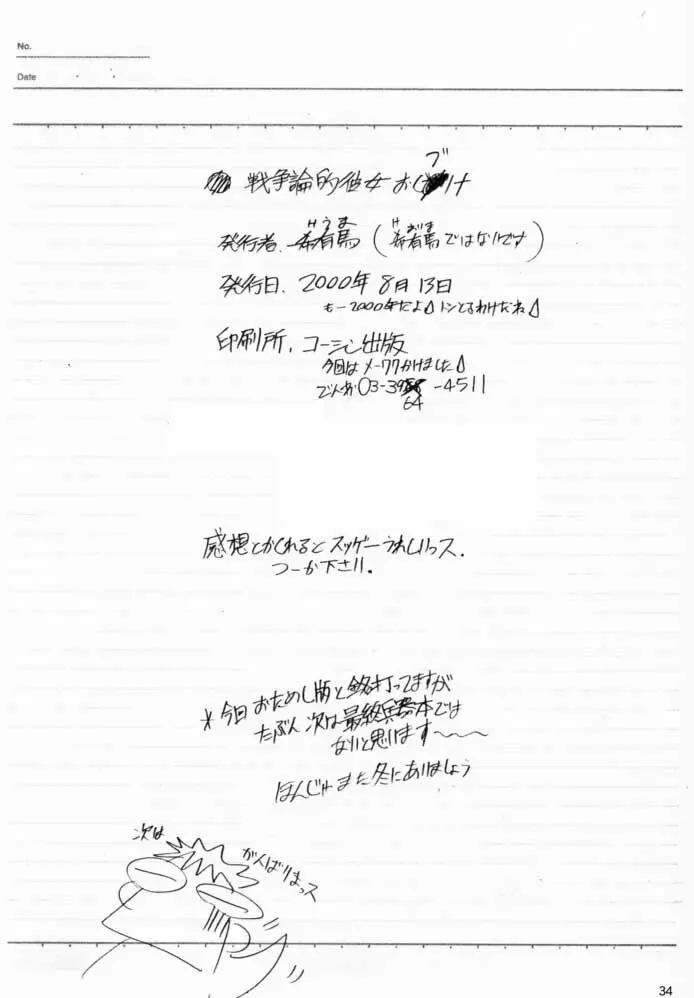 No.
Date
ブ
戦争論的彼女 おしまけ
Hうま
発行者. 希有馬 (希有馬ではないです)
発行日. 2000年8月13日
もー2000年だよ トシとるわけだね
印刷所. コーシン出版
今回はメーワクかけました
でんわ03-39 -4511
64
感想とかくれるとスッゲーうれしいっス.
つーか下さい.
*今日おためし版と銘打ってますが
たぶん次は最終兵器本では
ないと思います~~~
ほんじゃまた冬にあいましょう
次は
がんばりまっス
34